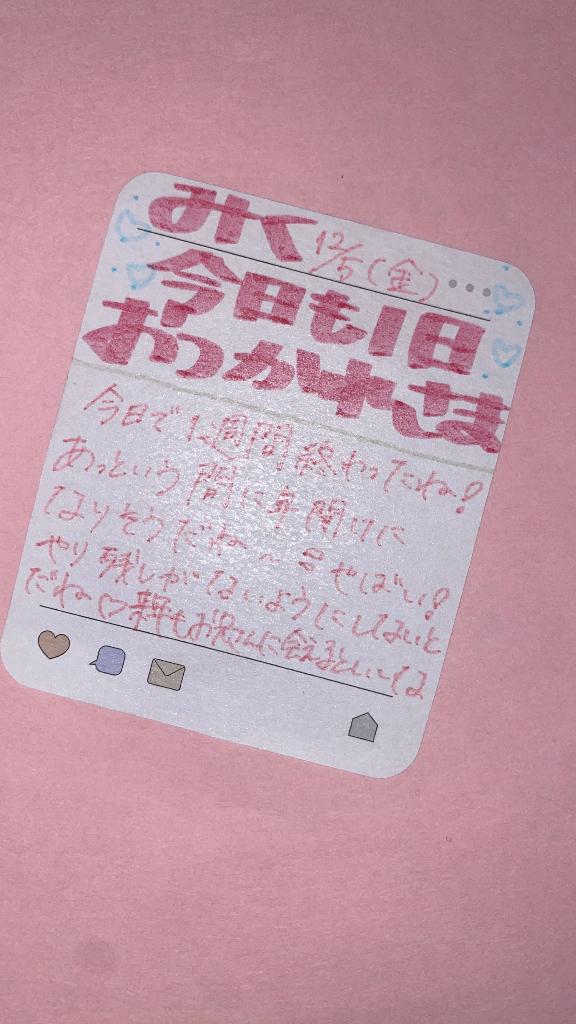 みく 12/5(金)
今日も1日
おつかれさま
今日で1週間終わったね!
あっという間に年開けに
なりそうだね〜 やばい!
やり残しがないようにしないと
だね♡来年もお兄さんに会えるといいな